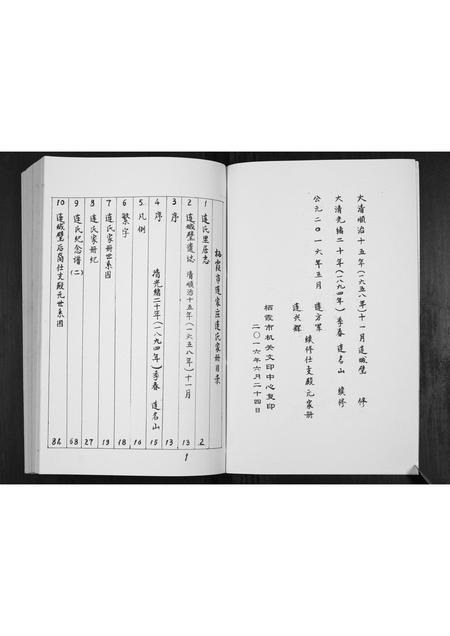 大清顺治十五年(一六五八年)十一月 连城璧 修
大清光绪二十年(一八九四年)季春 连名山 续修
公元二〇一六年五月 连方军 续修仕支殿元家册
连兴辉
栖霞市机关文印中心复印
二〇一六年六月二十四日
栖霞市连家庄连氏家册目录
1 连氏里居志 2
2 连城璧遗志 清顺治十五年(一六五八年)十一月 13
3 序 13
4 序 清光绪二十年(一八九四年)季春 连名山 15
5 凡例 16
6 繁字 18
7 连氏家册世系图 19
8 连氏家册纪 27
9 连氏纪念谱(二) 68
10 连城璧后裔仕支殿元世系图 82
1